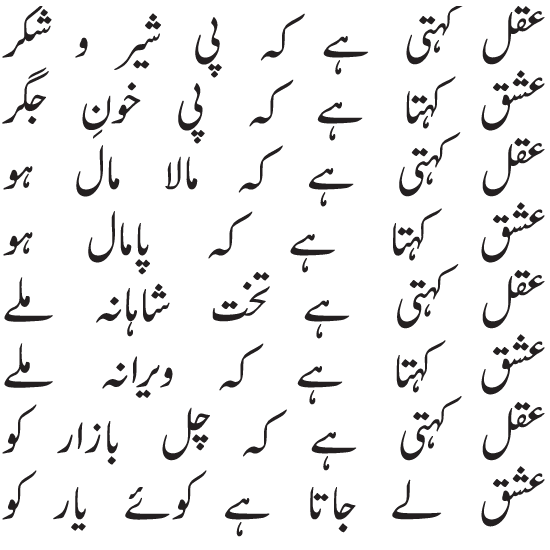 عقل کہتی ہے کہ پی شیر و شکر
عشق کہتا ہے کہ پی خونِ جگر
عقل کہتی ہے کہ مالا مال ہو
عشق کہتا ہے کہ پامال ہو
عقل کہتی ہے تخت شاہانہ ملے
عشق کہتا ہے کہ ویرانہ ملے
عقل کہتی ہے کہ چل بازار کو
عشق لے جاتا ہے کوئے یار کو